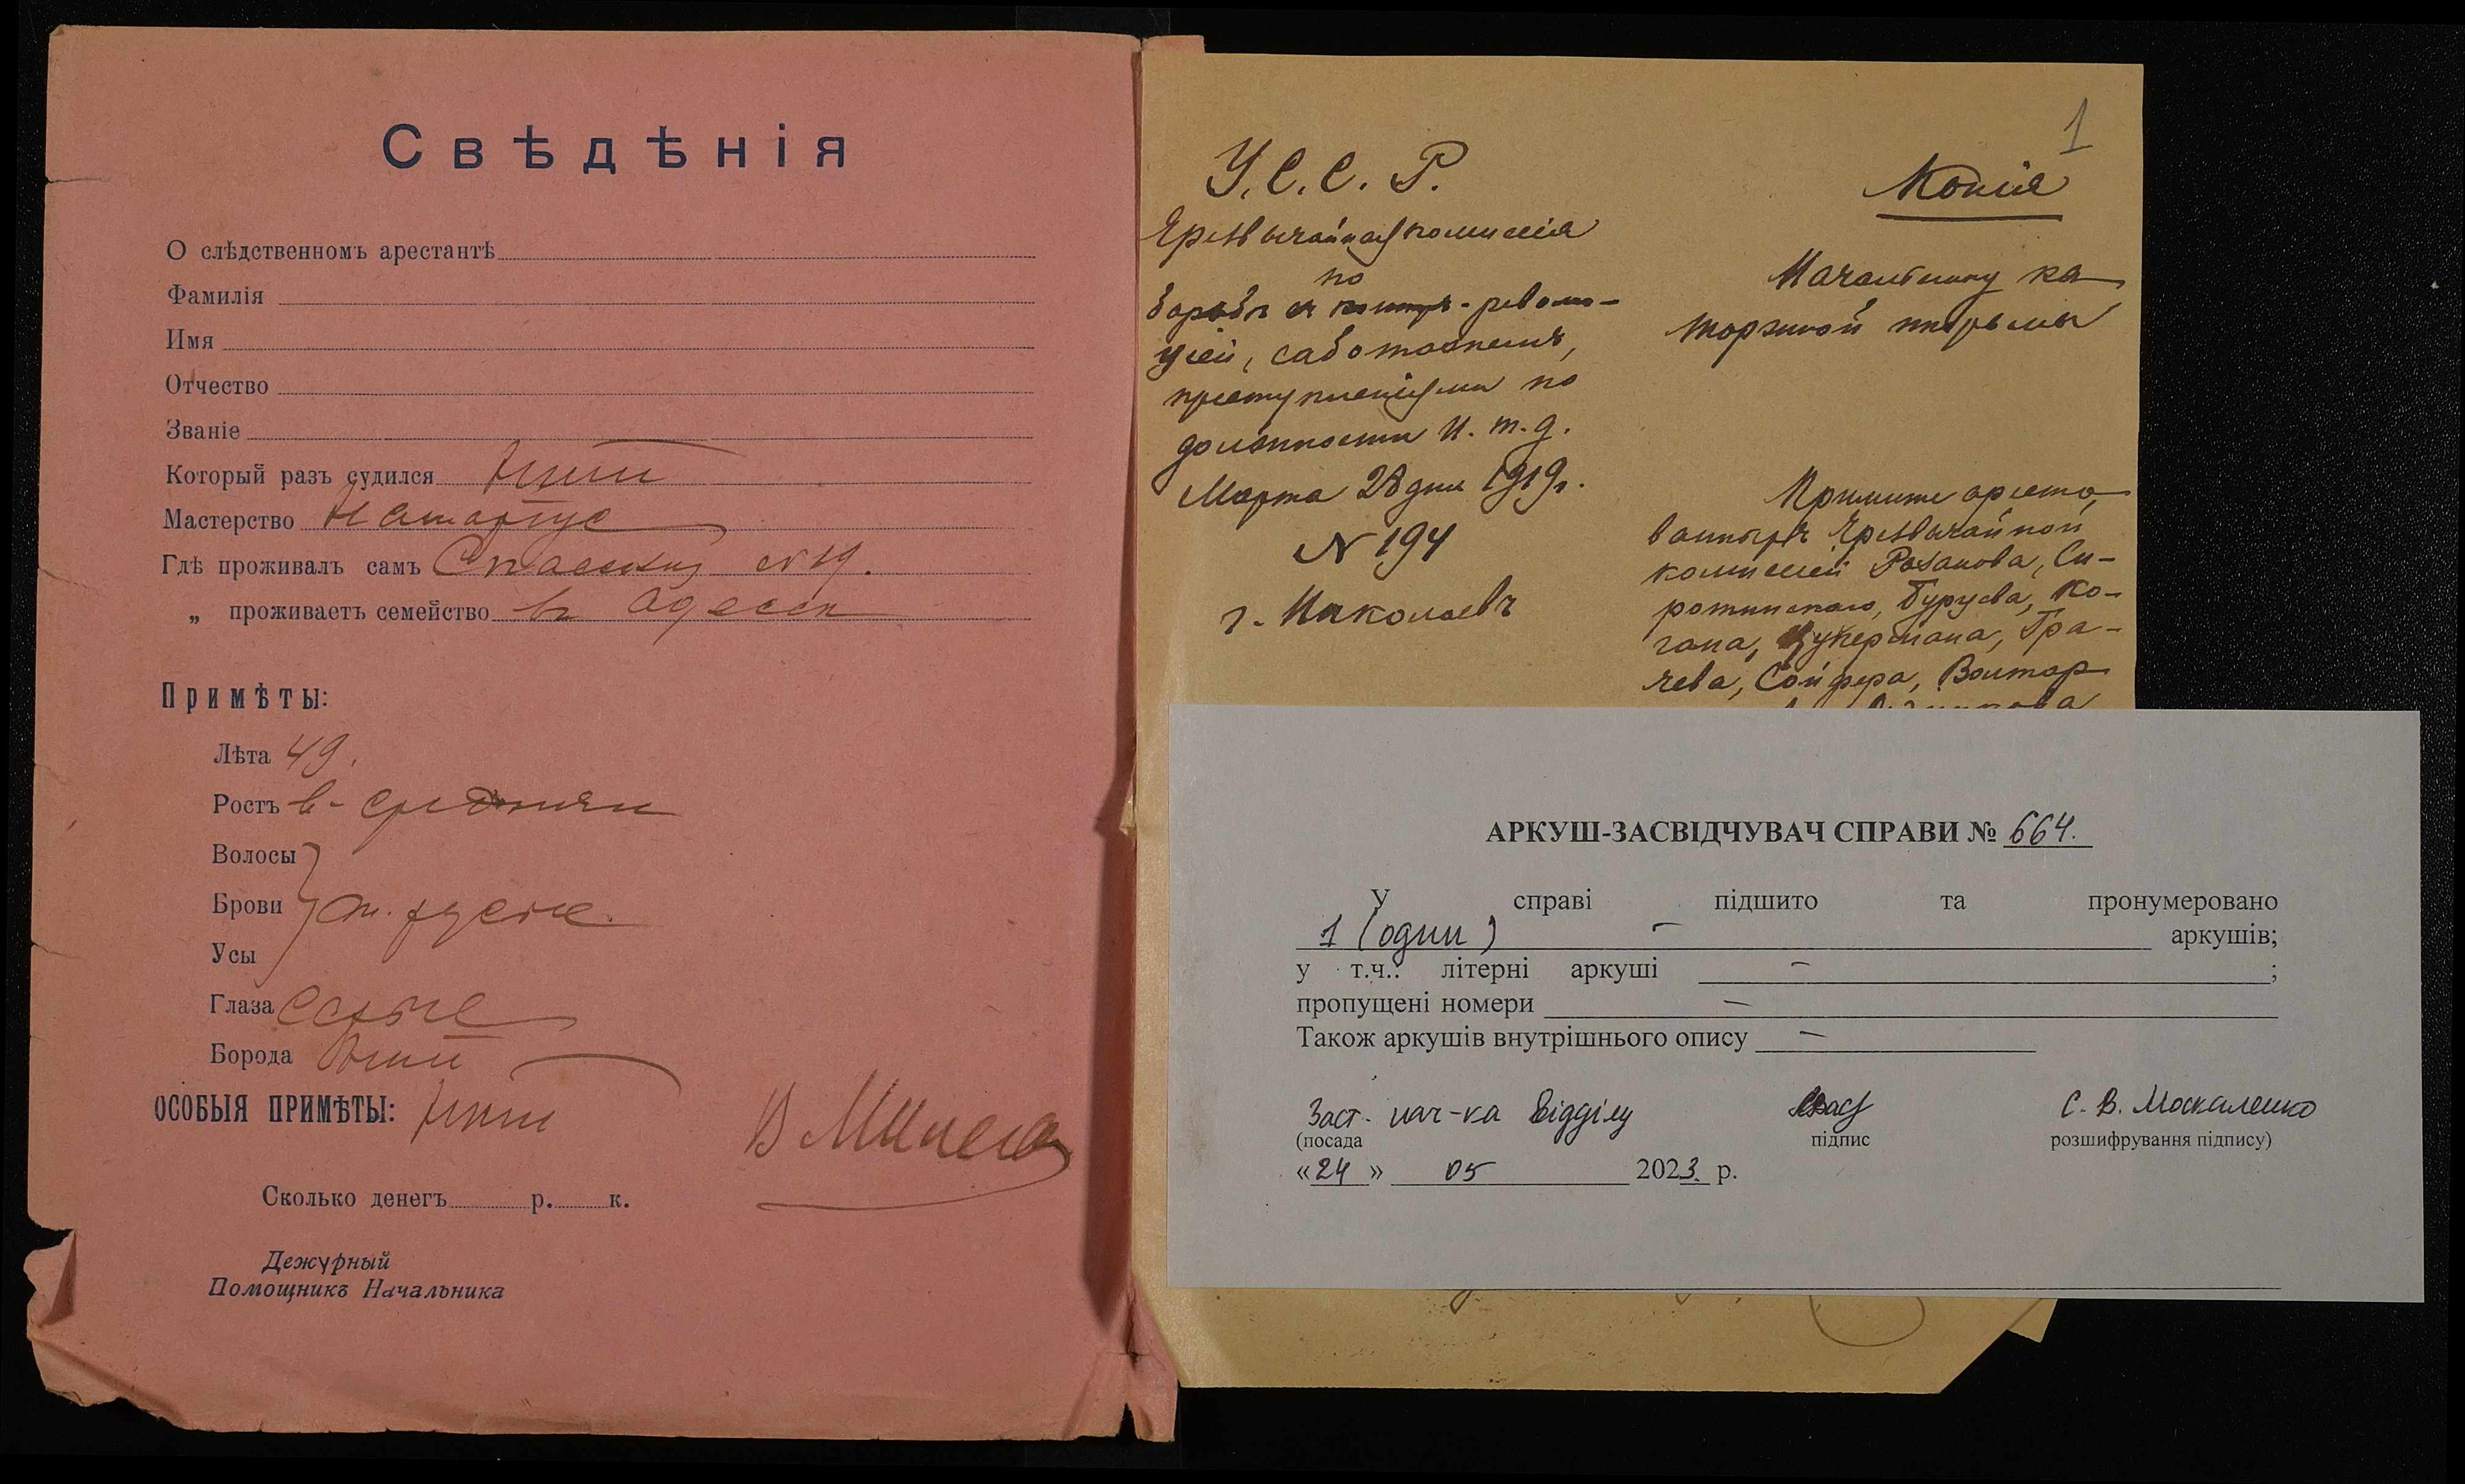 Свѣдѣнія
О слѣдственномъ арестантѣ
Фамилія
Имя
Отчество
Званіе
Который разъ судился нѣтъ
Мастерство Натаріус
Гдѣ проживалъ самъ Спасская № 19.
„ проживаетъ семейство въ Одессѣ
Примѣты:
Лѣта 49.
Ростъ в-средній
Волосы
Брови т. русые.
Усы
Глаза серые
Борода нѣтъ
ОСОБЫЯ ПРИМѢТЫ: нѣтъ
Сколько денегъ р. к.
Дежурный
Помощникъ Начальника
1
У.С.С.Р.
Чрезвычайная комиссія
по
борьбѣ съ контръ-револю-
ціей, саботажемъ,
преступленіями по
должности и. т. д.
Марта 28 дня 1919 г.
N 194
г. Николаевъ
Копія
Начальнику ка-
торжной тюрьмы
Примите аресто-
ванныхъ Чрезвычайной
комиссіей Розанова, Си-
ротинскаго, Буруева, Ко-
гана, Цукермана, Гра-
чева, Сойфера, Вольтор
АРКУШ-ЗАСВІДЧУВАЧ СПРАВИ № 664.
У справі підшито та пронумеровано
1 (один) – аркушів;
у т.ч.: літерні аркуші – ;
пропущені номери –
Також аркушів внутрішнього опису –
Заст. нач-ка відділу С. В. Москаленко
(посада підпис розшифрування підпису)
«24» 05 2023 р.